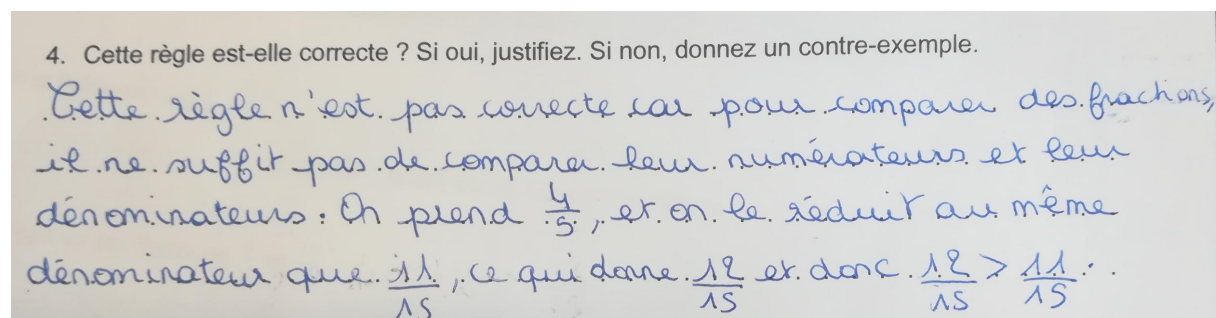 4. Cette règle est-elle correcte ? Si oui, justifiez. Si non, donnez un contre-exemple.
Cette règle n'est pas correcte car pour comparer des fractions,
il ne suffit pas de comparer leur numérateurs et leur
dénominateurs. On prend 4/5, et on le réduit au même
dénominateur que 11/15, ce qui donne 12/15 et donc 12/15 > 11/15.